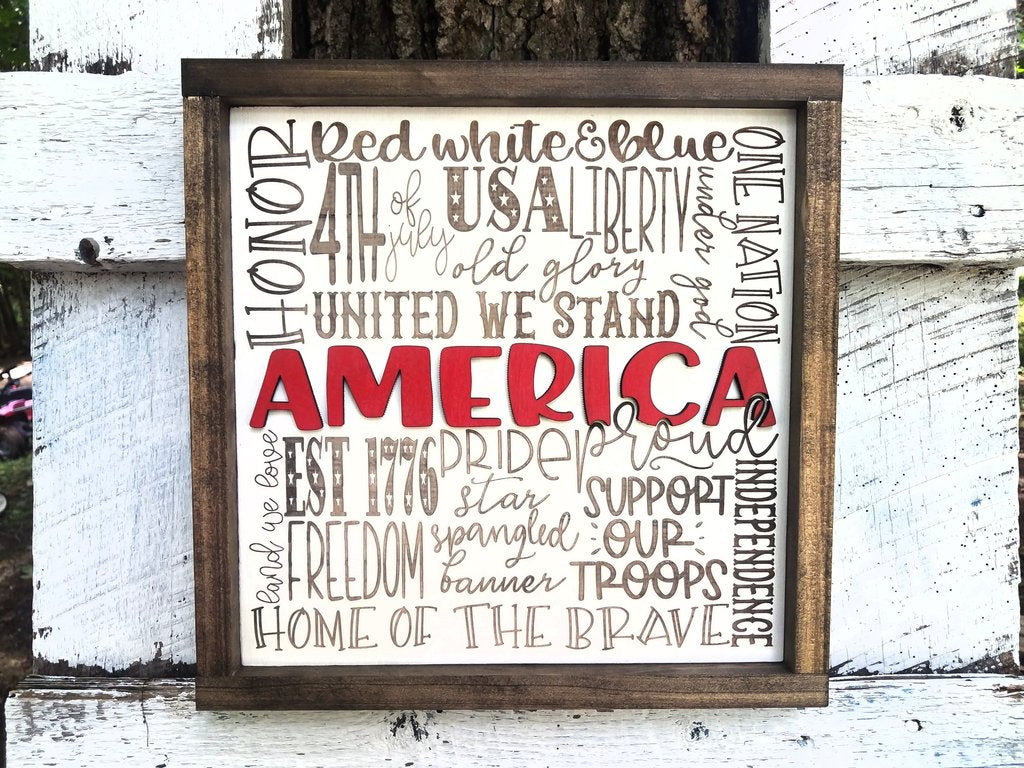 HONOR
Red white & blue
4TH of july
USA
LIBERTY
under god
ONE NATION
old glory
UNITED WE STAND
AMERICA
land we love
EST 1776
PRIDE
proud
star
spangled
banner
SUPPORT
OUR
TROOPS
INDEPENDENCE
FREEDOM
HOME OF THE BRAVE